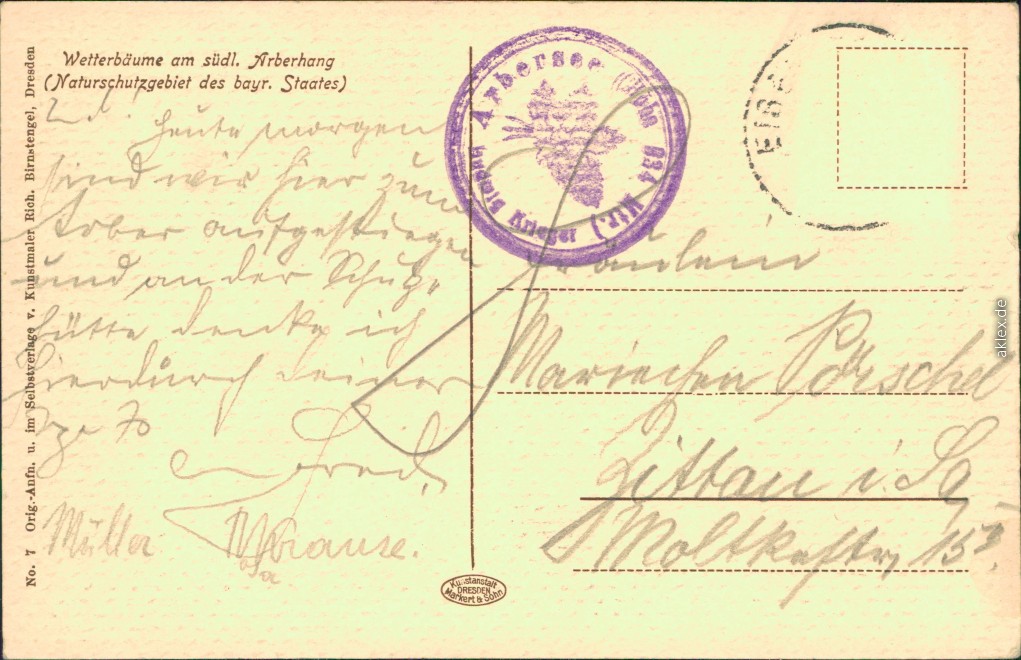 Wetterbäume am südl. Arberhang
(Naturschutzgebiet des bayr. Staates)
No. 7 Orig.-Anfn. u. im Selbstverlage v. Kunstmaler Rich. Birnstengel, Dresden
L.
Heute morgen
sind wir hier zum
Arber aufgestiegen
und an der Schutz-
hütte denke ich
hierdurch deiner
Fred.
Müller
Krause.
Arbersee (Höhe 934 Mtr.)
Krieger
Fräulein
Mariechen Pörschel
Zittau i. Sa
Moltkestr. 15
Kunstanstalt
DRESDEN
Markert & Sohn
aklex.de